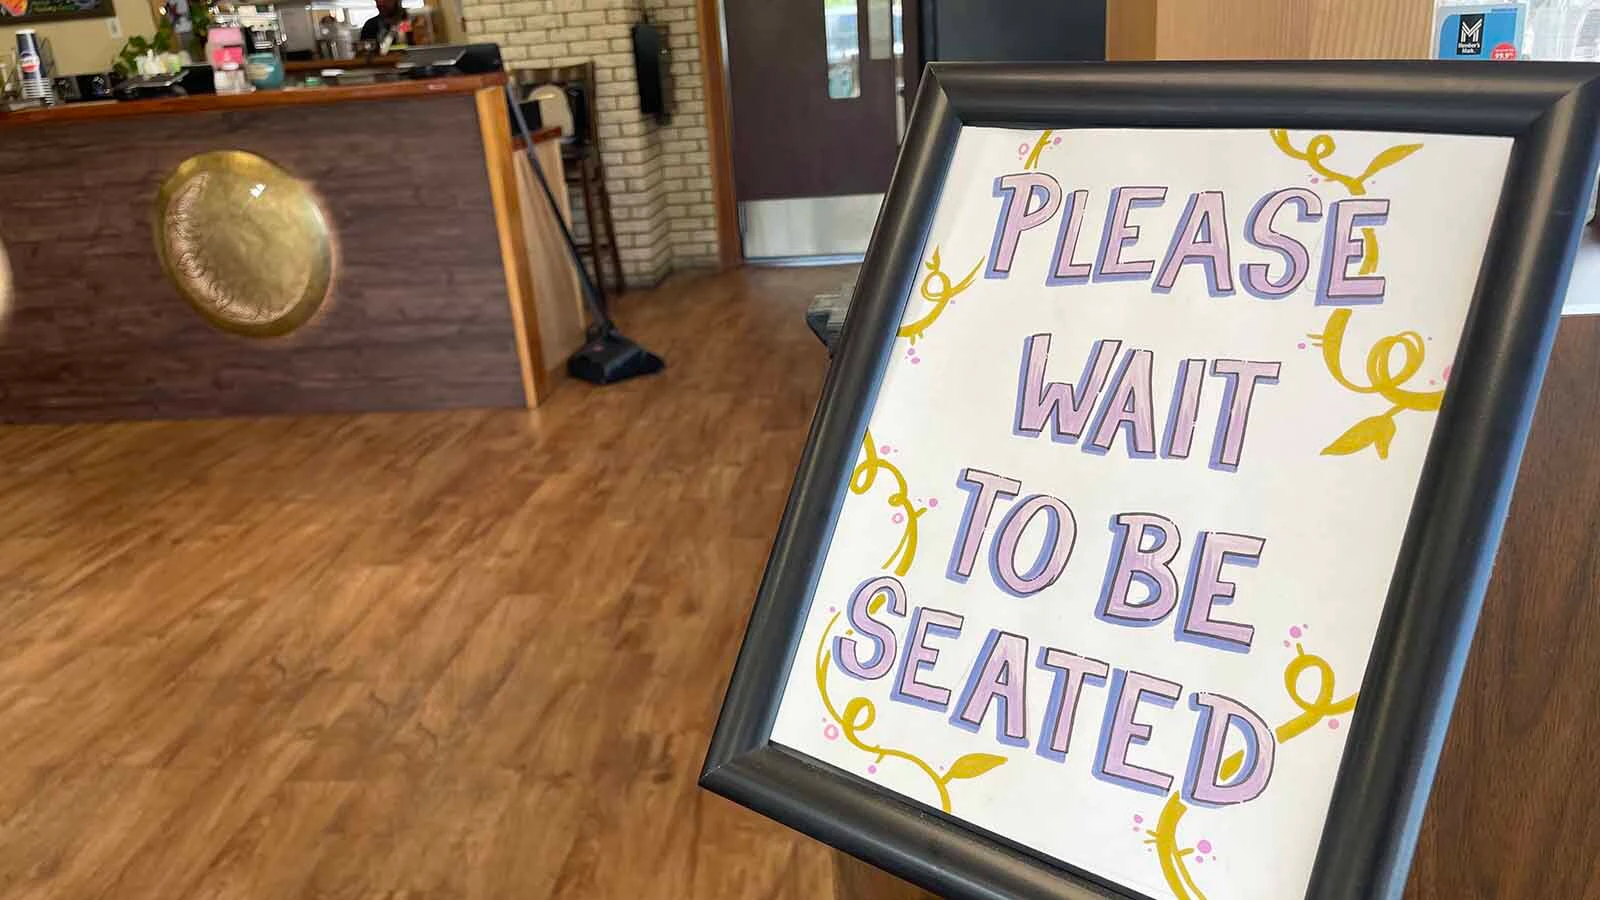 PLEASE
WAIT
TO BE
SEATED
Member's
Mark